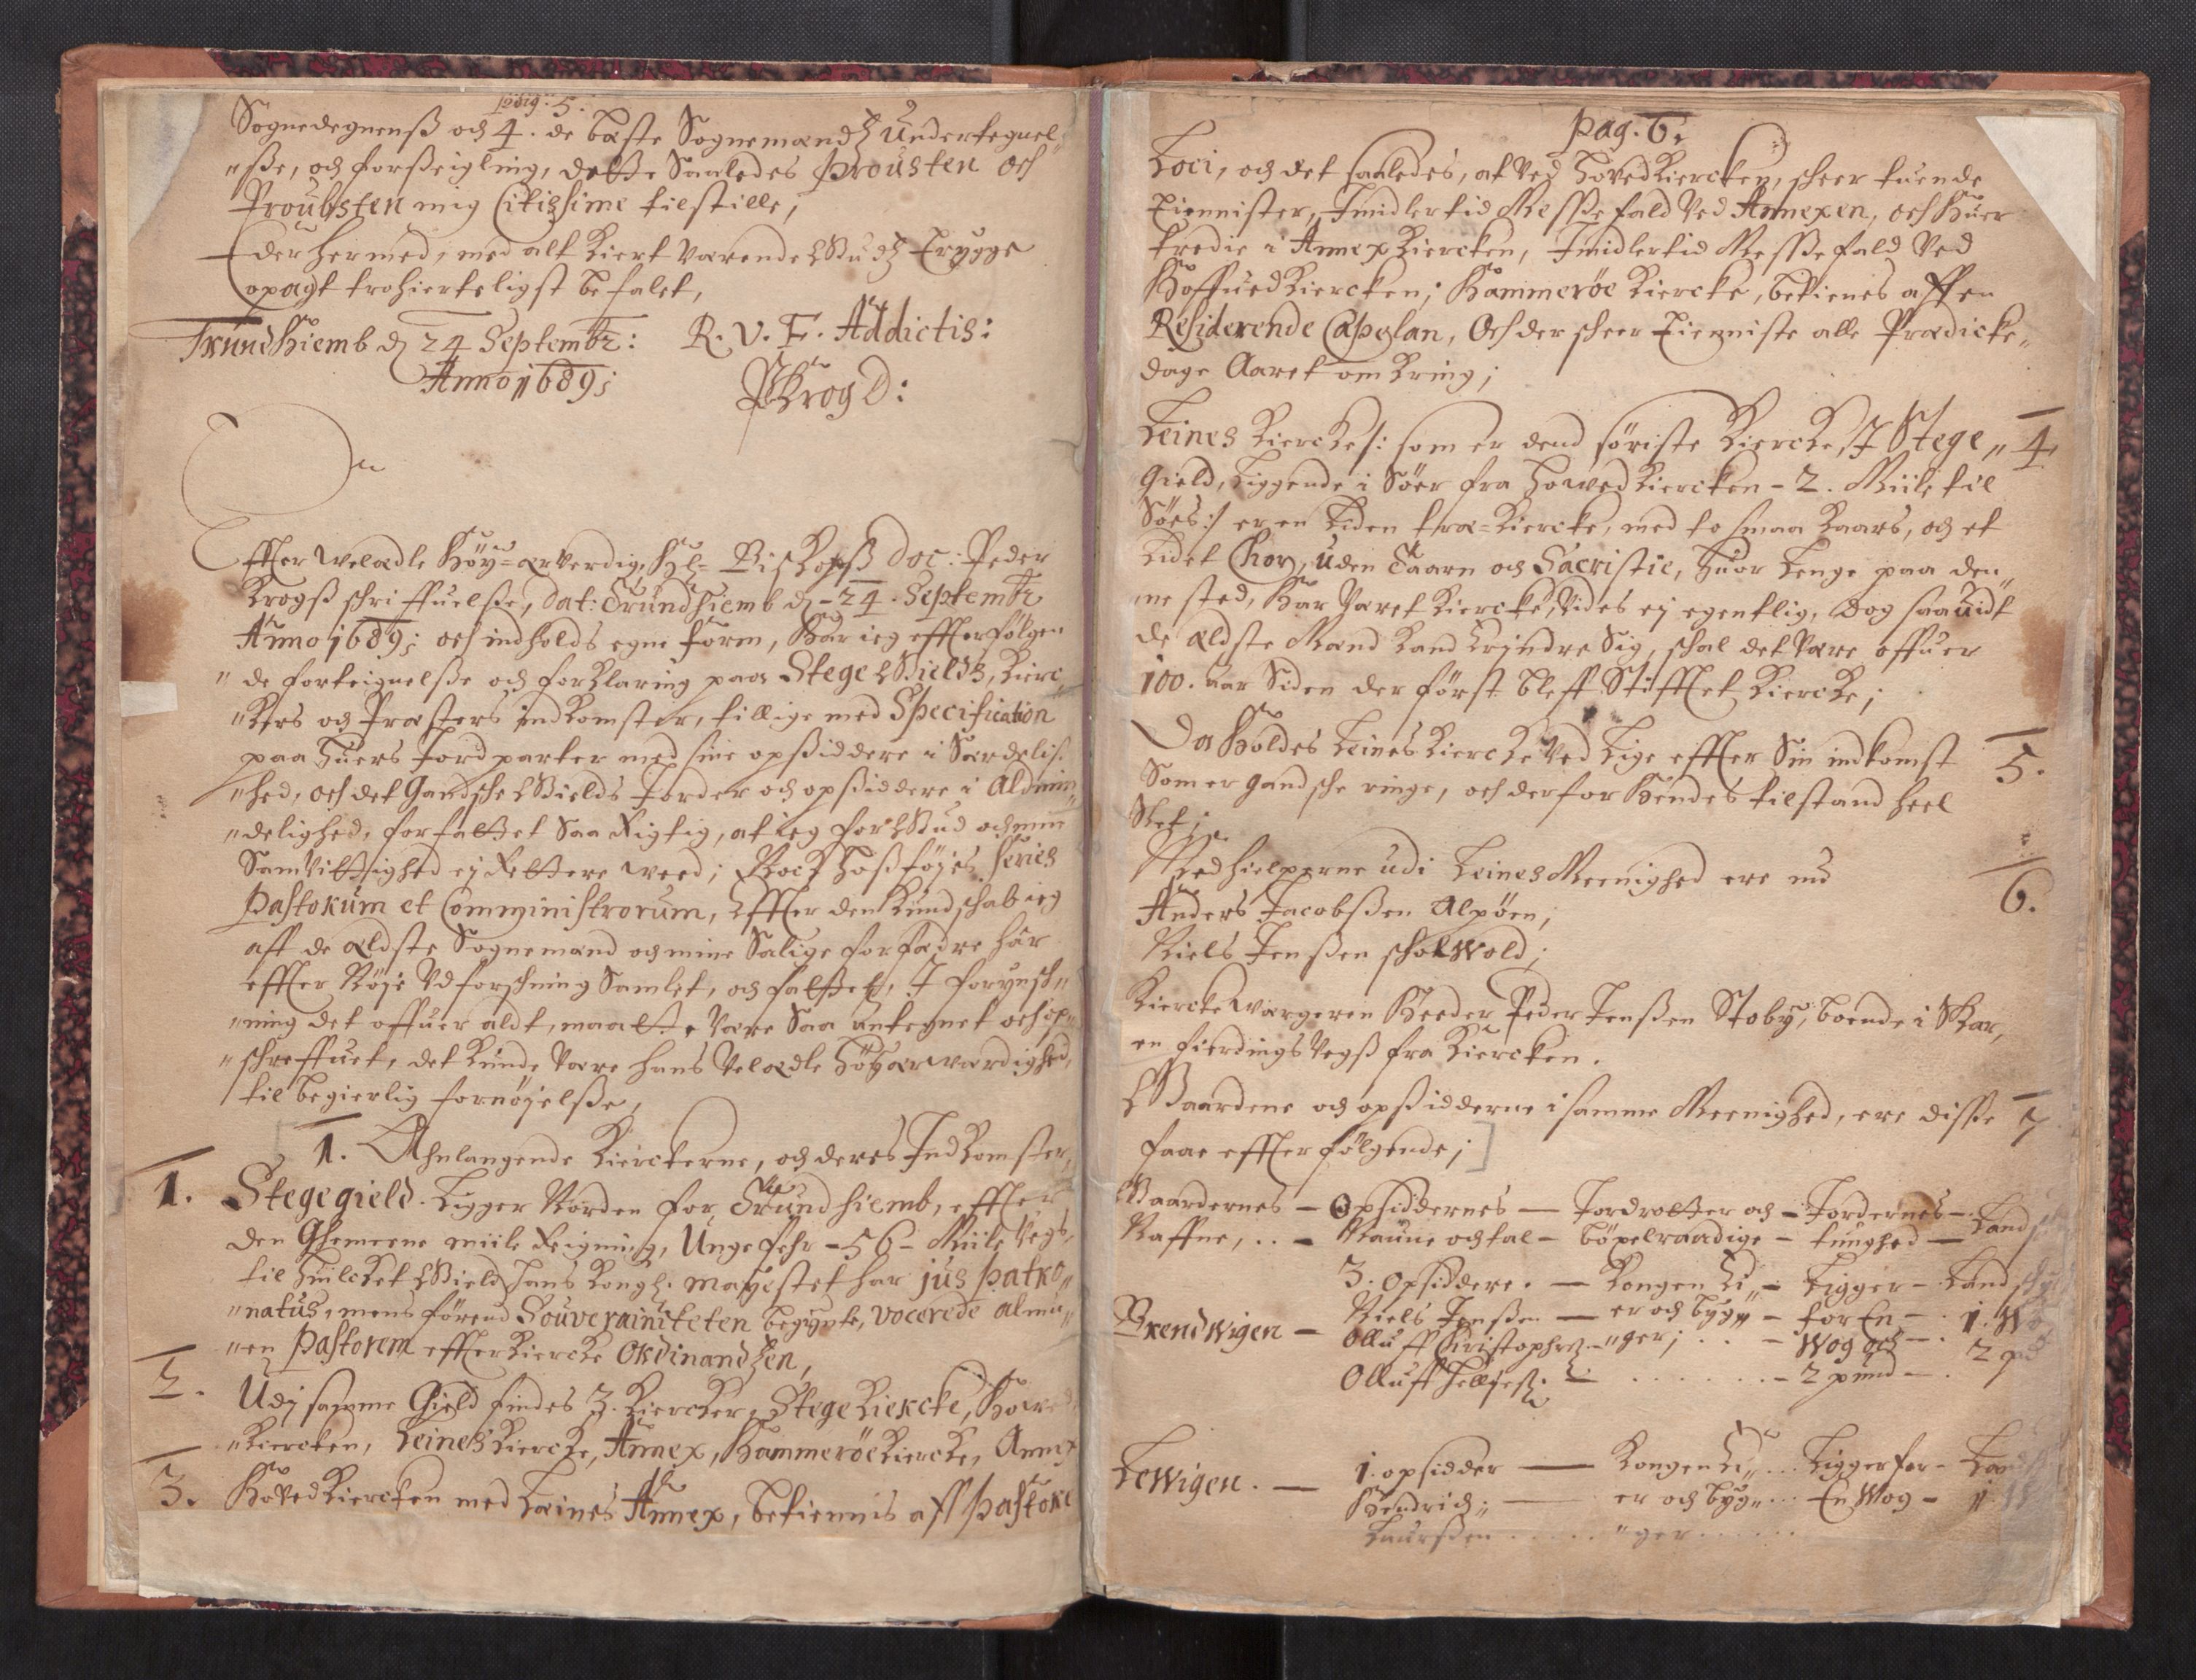 pag. 5.
Sognedegnenß och 4. de bæste Sognemændz Undertegnel„
„ße, och forßeigling, dette Saaledes Prousten och
Proubsten mig Citissime tilstille,
Eder hermed, med alt Kiert Værende Guds Trygge
opagt trohierteligst befalet,
Trundhiemb d 24 Septembr: R. V. F. Addictis:
Anno 1689; PKrog D:
Effter Welædle Höy=ærverdig, Hl= Biskopß Doc: Peder
Krogß schriffuelße, dat: Trundhiemb d - 24 Septembr
Anno 1689; och indholds egne form, Har ieg effterfølgen
„de forteignelße och forklaring paa Stege Gields, Kierc
„kers och Præsters indkomster, tillige med Specification
paa huers Jordparter med sine opßiddere i Særdelis„
„hed, och det Gandsche Gields Jorder och opßiddere i Aldmin„
„delighed, forfattet Saa Rigtig, at ieg for Gud och min
Samvittighed ej Rettere weed; Noch hoßföjes Series
Pastorum et Comministrorum, Effter den Kundschab ieg
aff de ældste Sognemænd och mine Salige forfædre hår
effter Nöje Udforschning Samlet, och fattet, J forønsch„
„ning det offuer aldt, maatte Være Saa antegnet och op„
„schreffuet, det Kunde Være hans Velædle Höyærwærdighed,
til begierlig fornöjelße,
1. Anlangende Kierckerne, och deres Indkomster,
1. Stegegield. Ligger Norden for Trundhiemb, effter
den Ghemeene miile Reigning, Ungefehr - 56 - Miile Vegs,
til huilcket Gield hans Kongl. Mayestet har jus patro„
„natus, mens förend Souverainiteten begynte, vocerede almu„
„en Pastorem effter Kiercke Ordinandzen,
2. Udj samme Gield findes 3. Kiercker, Stege Kiercke, Hoved
„Kiercken, Leines Kiercke, Annex, Hammeröe Kiercke, Annex
3. HovedKiercken med Leines Annex, betiennis aff Pastore
pag. 6.
Loci, och det saaledes, at Ved HovedKiercken, scheer tuende
Tiennister, Imidlertid Messefald Ved Annexen, och huer
tredie i AnnexKiercken, Imidlertid Messefald Ved
HoffuedKiercken; Hammeröe Kiercke, betienes aff en
Residerende Capelan, Och der scheer Tienniste alle Prædicke„
dage Aaret omkring;
Leines Kiercke /: som er dend söriste Kiercke J Stege„ 4
Gield, Liggende i Söer fra HovedKiercken - 2. Miile til
Söes :/ er en Liden træ=Kiercke, med to smaa Kaars, och et
Lidet Chor, uden Taarn och Sacristie, huor Lenge paa den„
„ne sted, Har Været Kiercke, Vides ej egentlig, dog saavidt
de ældste Mænd Kand Erindre Sig, schal det Være offuer
100. aar Siden der först bleff Stifftet Kiercke;
Da Holdes Leines Kiercke Ved Lige effter Sin indkomst 5.
Som er gandsche ringe, och derfor hendes tilstand heel
Slet;
Medhielperne udi Leines Meenighed ere nu 6.
Anders Jacobßen Alpöen,
Niels Jenßen scholWold;
Kiercke Wærgeren Heeder Peder Jenßen Stoby, boende i Skar,
en fierdings Vegß fra Kiercken.
Gaardene och opßidderne i samme Meenighed, ere disse 7
faae effter følgende;
Gaardernes - Opsiddernes - Jordrotter och - Jordernes - Land
Naffne, . . - Naune och tal - böxelraadige - tunghed -
3. Opsiddere. - Kongen Ei„ - Ligger - Landschyld
Brendwigen - Niels Jenßen - er och byg„ - for En - 1. Wo
Olluff Christophersß - „ger; . . - Wog och - 2 pd
Olluff Tellessß: - . . . . . . - 2 pund - .
Lewigen. - 1. opsidder - Kongen Ei„ . . . Ligger for - Land
Hendrich: - er och byg„ . . . En Wog - 1 W
Laurßen . . . . . „ger . . . . . .